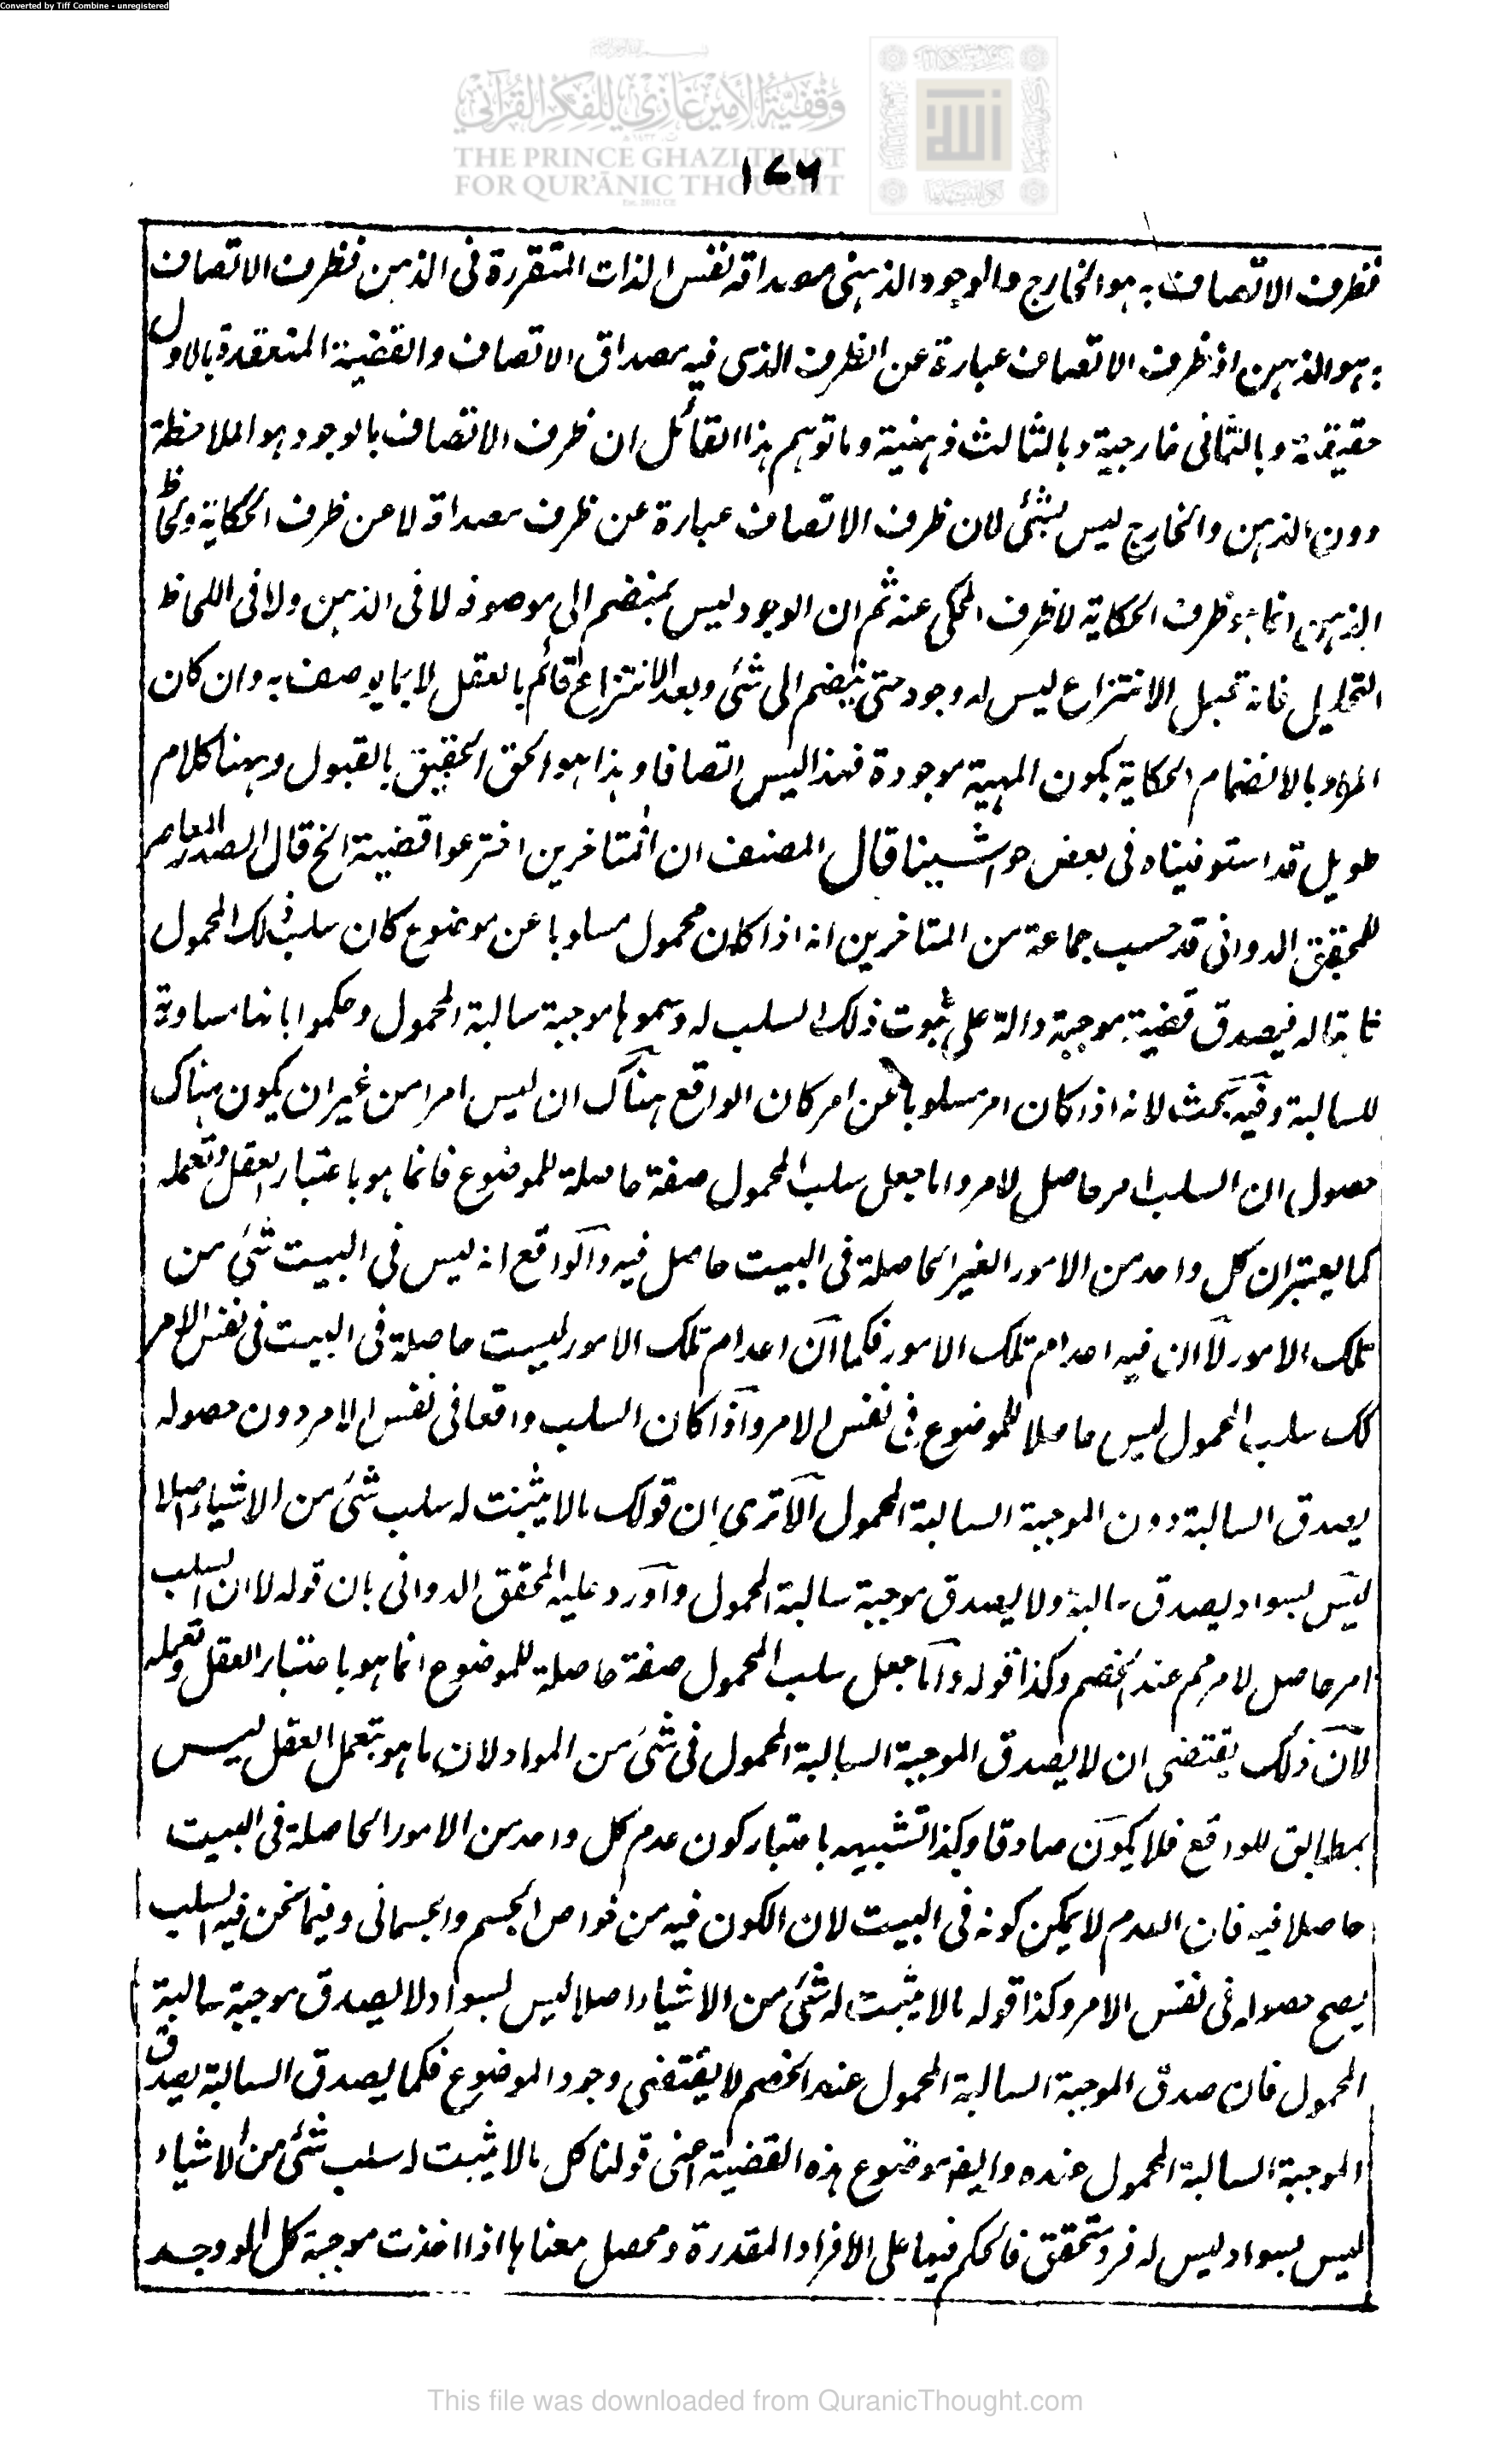 Converted by Tiff Combine - unregistered
وقفية الأمير غازي للفكر القرآني
THE PRINCE GHAZI TRUST
FOR QUR'ĀNIC THOUGHT
۱۷۶
فظرف الاتصاف به هو الخارج والوجود الذهنى مصداقه نفس الذات المتقررة فى الذهن فظرف الاتصاف
به هو الذهن اذ ظرف الاتصاف عبارة عن الظرف الذى فيه مصداق الاتصاف والقضية المنعقدة بالاول
حقيقية وبالثانى خارجية وبالثالث ذهنية وما توهم هذا القائل ان ظرف الاتصاف بالوجود هو الملاحظة
دون الذهن والخارج ليس بشئ لان ظرف الاتصاف عبارة عن ظرف مصداقه لا عن ظرف الحكاية ولحاظ
الذهن انما هو ظرف الحكاية لا ظرف المحكى عنه ثم ان الوجود ليس بمنضم الى موصوفه لا فى الذهن ولا فى اللحاظ
التحليلى فانه قبل الانتزاع ليس له وجود حتى ينضم الى شئ وبعد الانتزاع قائم بالعقل لا بما يوصف به وان كان
المراد بالانضمام الحكاية بكون المهية موجودة فهذا ليس اتصافا وهذا هو الحق الحقيق بالقبول وههنا كلام
طويل قد استوفيناه فى بعض حواشينا قال المصنف ان المتاخرين اخترعوا قضية الخ قال الصدر المعاصر
للمحقق الدوانى قد حسب جماعة من المتاخرين انه اذا كان محمول مسلوبا عن موضوع كان سلب ذلك المحمول
ثابتا له فيصدق قضية موجبة دالة على ثبوت ذلك السلب له وسموها موجبة سالبة المحمول وحكموا بانها مساوية
للسالبة وفيه بحث لانه اذا كان امر مسلوبا عن امر كان الواقع هناك ان ليس امرا من غير ان يكون هناك
حصول ان السلب امر حاصل لامر واما جعل سلب المحمول صفة حاصلة للموضوع فانما هو باعتبار العقل وتعمله
كما يعتبر ان كل واحد من الامور الغير الحاصلة فى البيت حاصل فيه والواقع انه ليس فى البيت شئ من
تلك الامور لا ان فيه اعدام تلك الامور فكما ان اعدام تلك الامور ليست حاصلة فى البيت فى نفس الامر
كك سلب المحمول ليس حاصلا للموضوع فى نفس الامر واذا كان السلب واقعا فى نفس الامر دون حصوله
يصدق السالبة دون الموجبة السالبة المحمول الا ترى ان قولك ما لا يثبت له سلب شئ من الاشياء اصلا
ليس بسواد يصدق سالبة ولا يصدق موجبة سالبة المحمول واورد عليه المحقق الدوانى بان قوله لا ان السلب
امر حاصل لامر مم عند الخصم وكذا قوله واما جعل سلب المحمول صفة حاصلة للموضوع انما هو باعتبار العقل وتعمله
لان ذلك يقتضى ان لا يصدق الموجبة السالبة المحمول فى شئ من المواد لان ما هو بتعمل العقل ليس
بمطابق للواقع فلا يكون صادقا وكذا تشبيهه باعتبار كون عدم كل واحد من الامور الحاصلة فى البيت
حاصلا فيه فان العدم لا يمكن كونه فى البيت لان الكون فيه من خواص الجسم والجسمانى وفيما نحن فيه السلب
يصح حصوله فى نفس الامر وكذا قوله ما لا يثبت له شئ من الاشياء اصلا ليس بسواد لا يصدق موجبة سالبة
المحمول فان صدق الموجبة السالبة المحمول عند الخصم لا يقتضى وجود الموضوع فكما يصدق السالبة يصدق
الموجبة السالبة المحمول عنده وايضا موضوع هذه القضية اعنى قولنا كل ما لا يثبت له سلب شئ من الاشياء
ليس بسواد ليس له فرد متحقق فالحكم فيها على الافراد المقدرة ومحصل معناها اذا اخذت موجبة كل لو وجد
This file was downloaded from QuranicThought.com